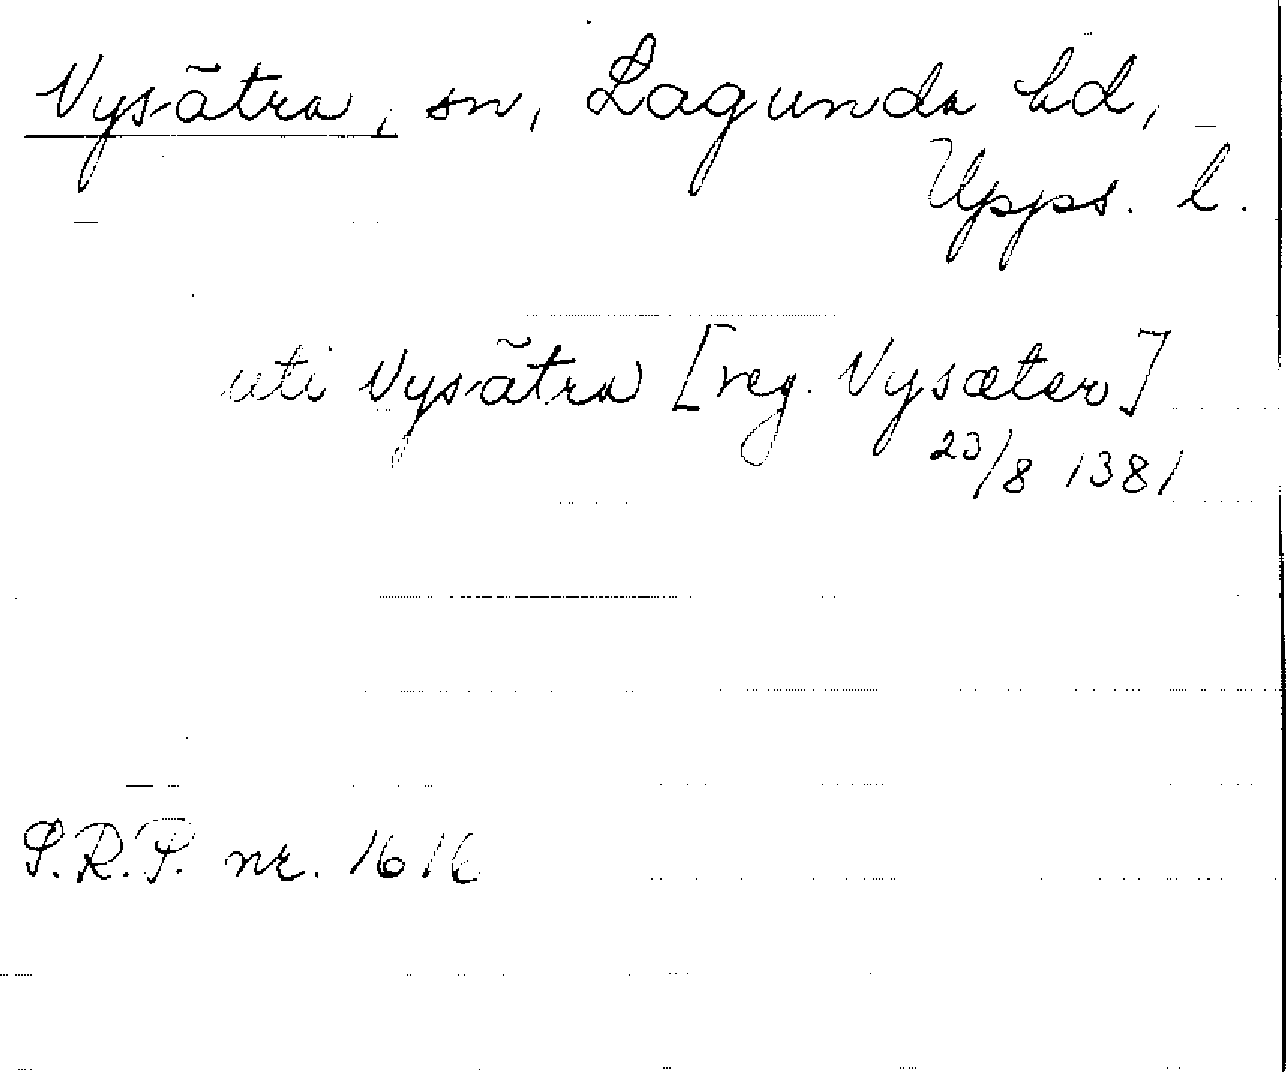 Nysätra, sn, Lagunda hd,
Upps. l.
uti Nysätra [reg. Nysæter]
23/8 1381
S.R.P. nr. 1616